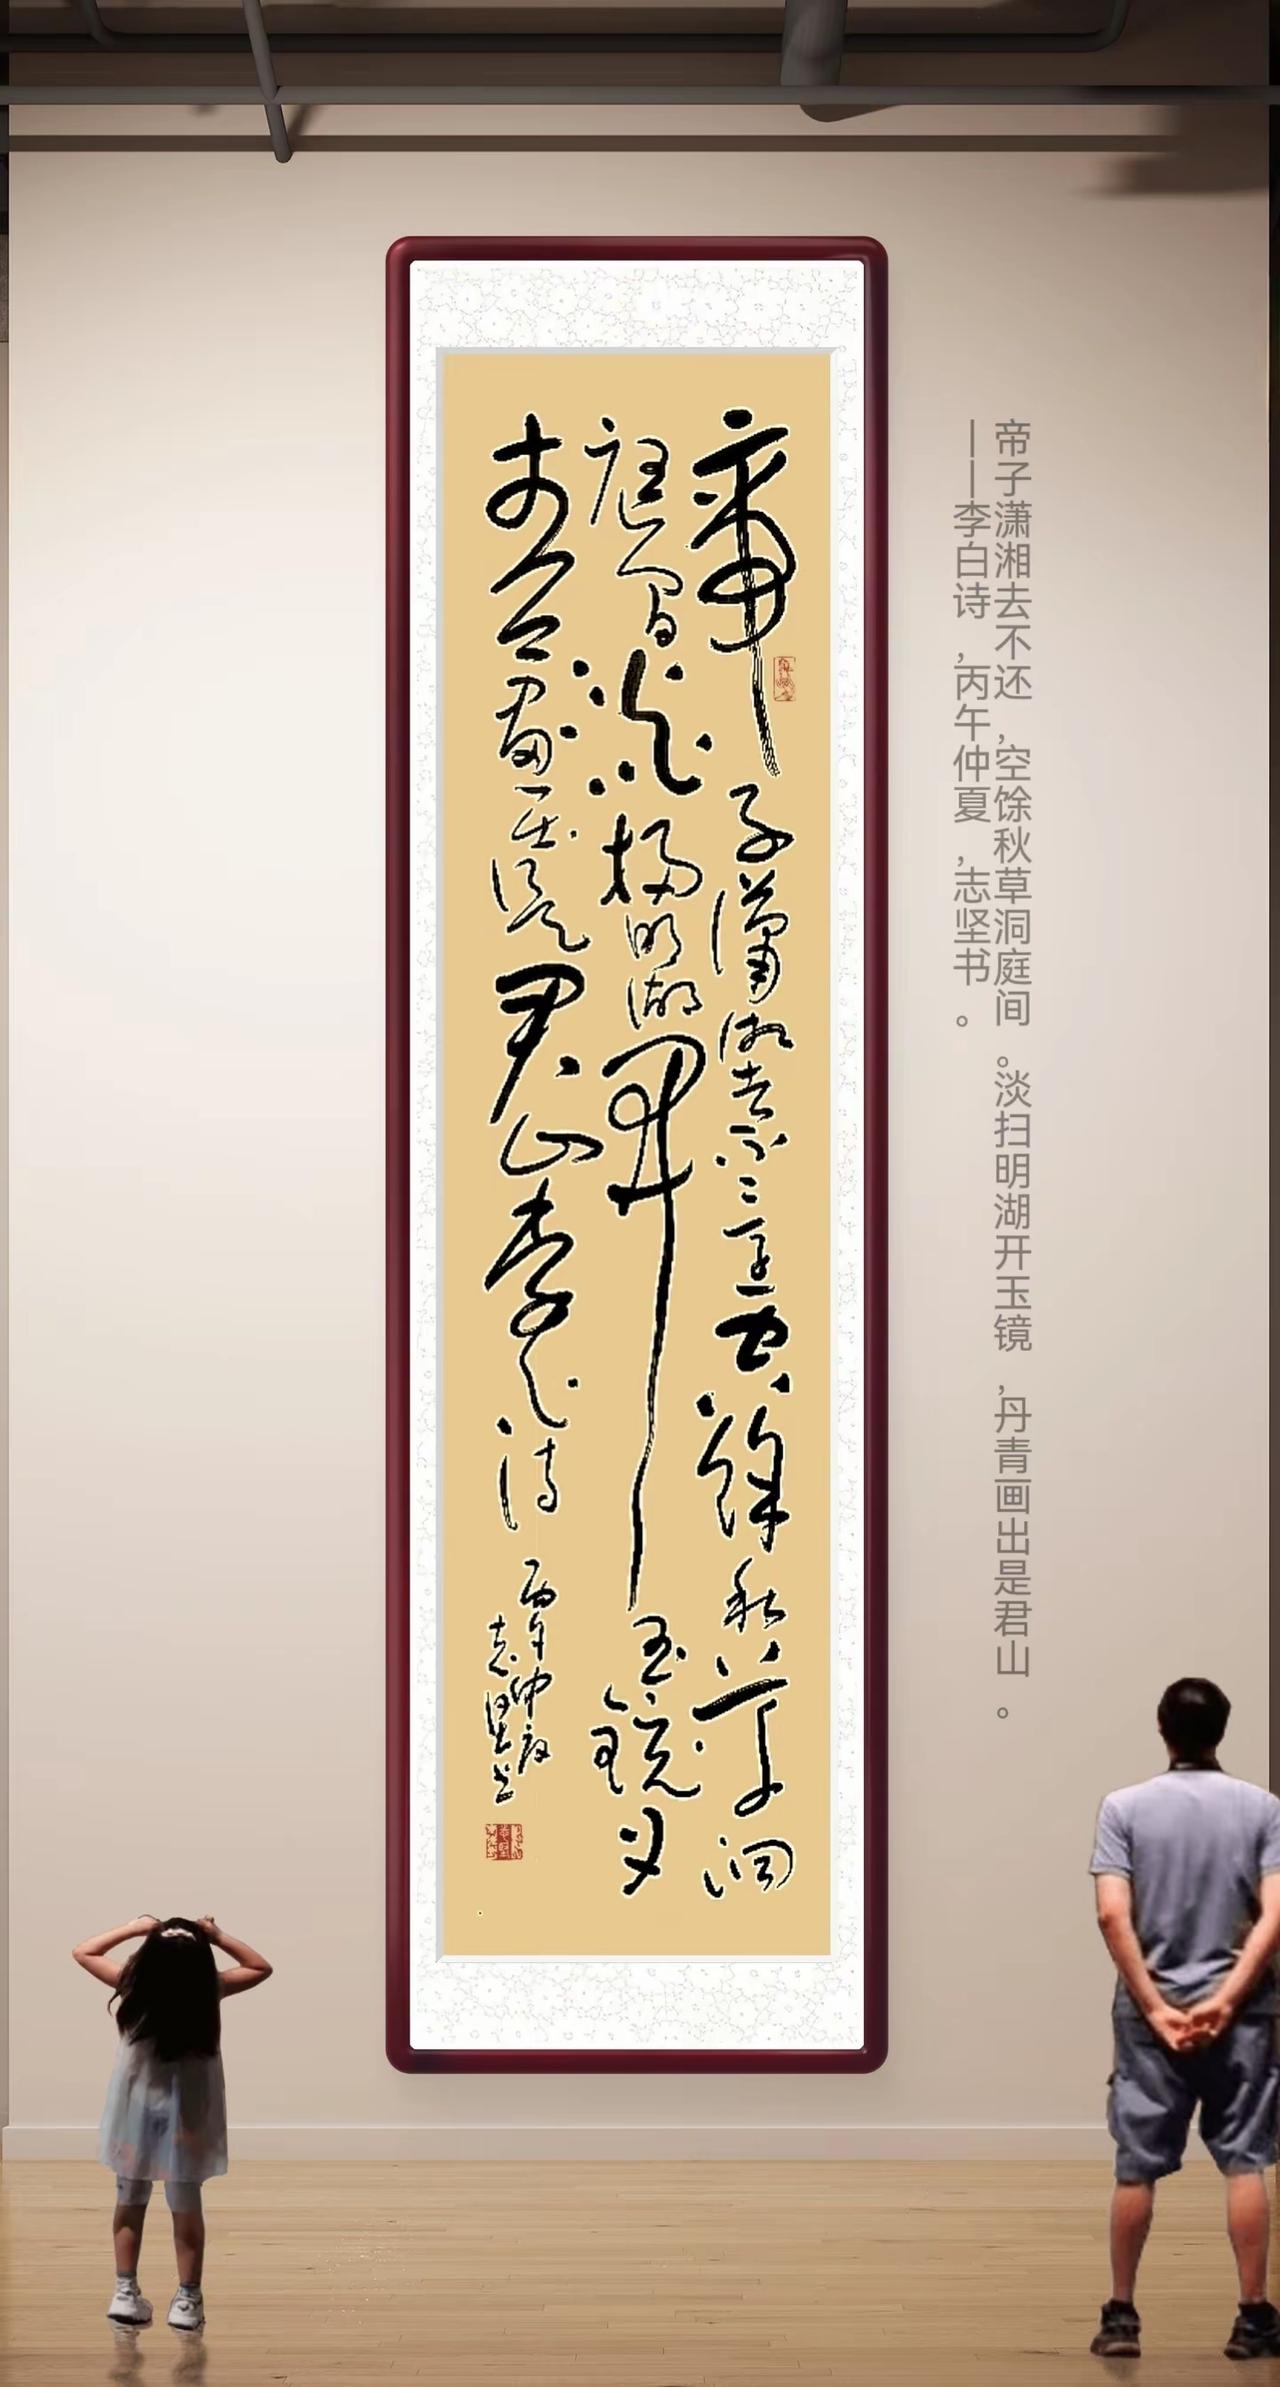 帝子潇湘去不还，空馀秋草洞庭间。淡扫明湖开玉镜，丹青画出是君山。
——李白诗，丙午仲夏，志坚书。
帝子瀟湘去不還空餘秋草洞
庭間淡掃明湖開玉鏡丹
青畫出是君山李白詩
丙午仲夏
志堅書